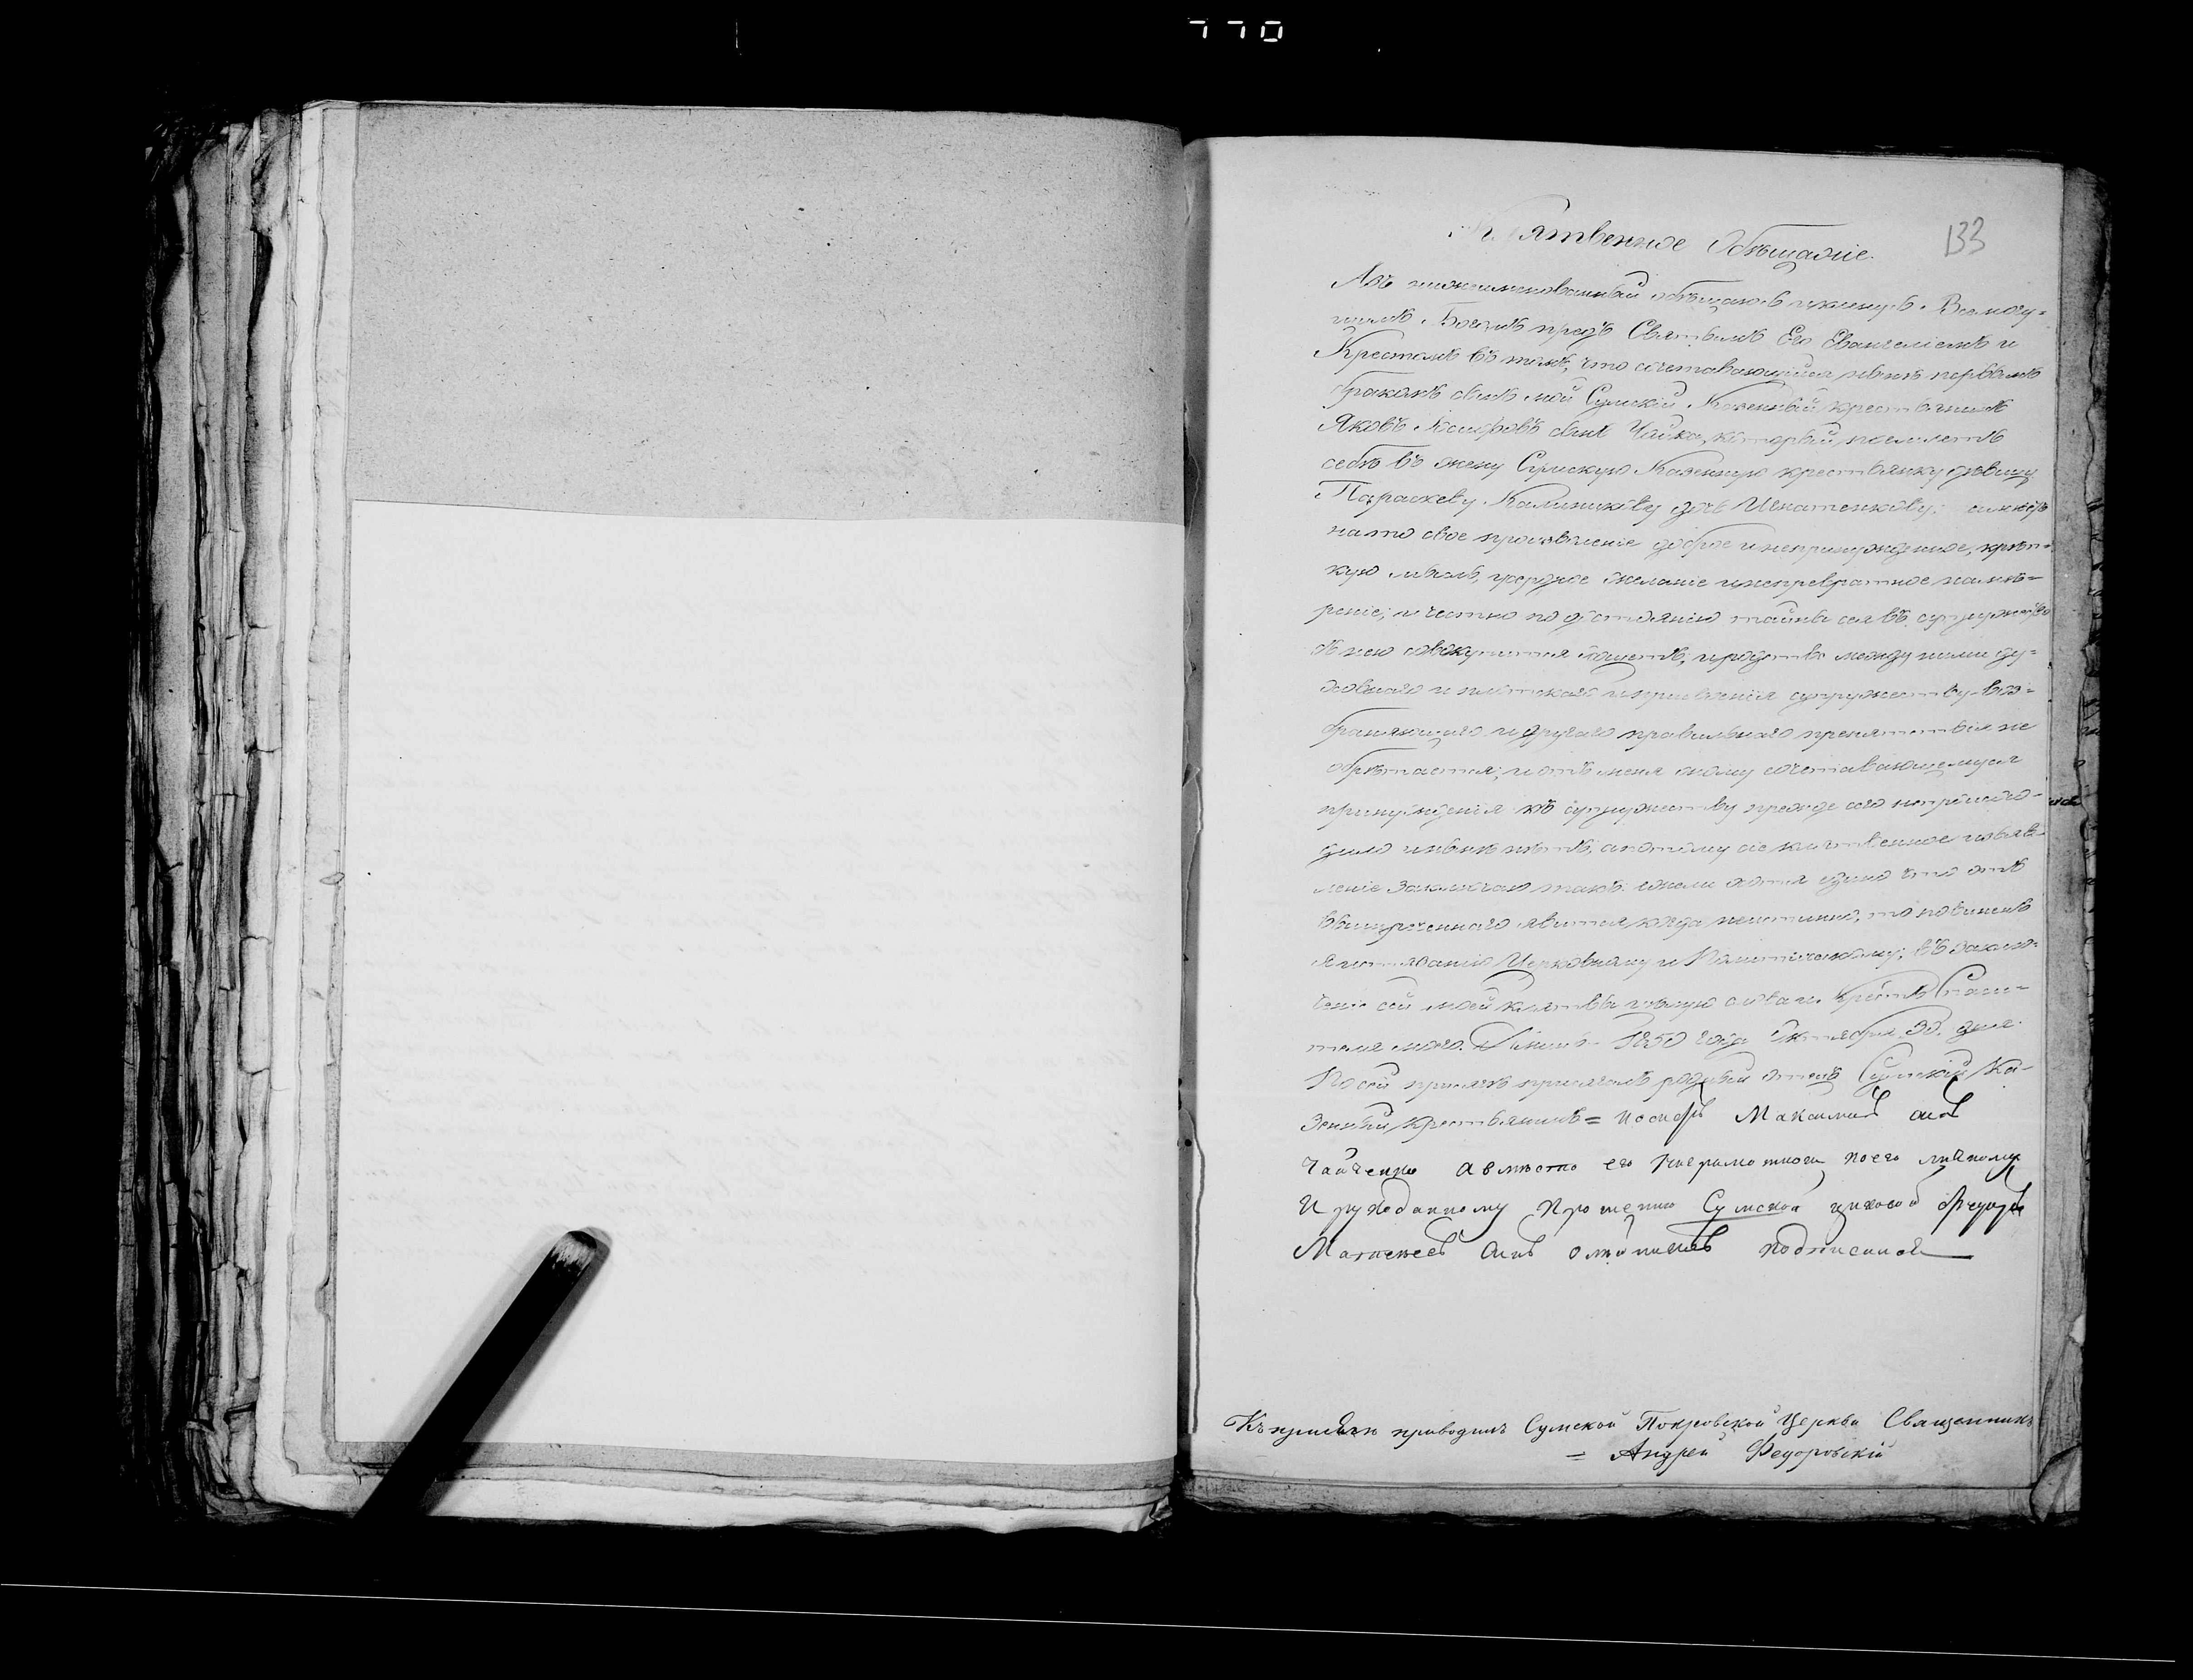 770
133
Клятвенное Обѣщаніе.
Азъ нижеименованный обѣщаюсь и клянусь Всемогу-
щимъ Богомъ предъ Святымъ Его Евангеліемъ и
Крестомъ въ томъ, что сочетавающійся нынѣ первымъ
бракомъ сынъ мой Сумскій Казенный крестьянинъ
Яковъ Іосифовъ сынъ Чайка, который поемлетъ
себѣ въ жену Сумскую Казенную крестьянку дѣвицу
Параскеву Калиникову дочь Игнатенкову; имѣетъ
на то свое произволеніе доброе и непринужденное, крѣп-
кую мысль, усердное желаніе и непревратное намѣ-
реніе; и честно по достоянію тайны сея въ супружество
съ нею совокупится хощетъ; и родства между ними ду-
ховнаго и плотскаго и присвоенія супружеству воз-
браняющаго и другаго правильнаго препятствія не
обрѣтается; и отъ меня оному сочетавающемуся
принужденія къ супружеству прежде сего непроисхо-
дило и нынѣ нѣтъ, а потому сіе клятвенное изъяв-
леніе заключаю такъ: ежели хотя едино что отъ
вышереченнаго явится когда неистинно, то повиненъ
я истязанію Церковному и Политическому; въ заклю-
ченіе сей моей клятвы цѣлую слова и Крестъ Спаси-
теля моего. Аминь. 1850 года Октября 30. дня.
По сей присягѣ присягалъ родный отецъ Сумскій Ка-
зенный крестьянинъ = иосифъ Максимовъ сынъ
Чайченко а вместо его неграмотнога по его личному
и рукоданному Прошению Сумской цеховой Федоръ
Матвеевъ сынъ подписался
Къ присягѣ приводилъ Сумской Покровской Церкви Священникъ
= Андрей Федоровскій